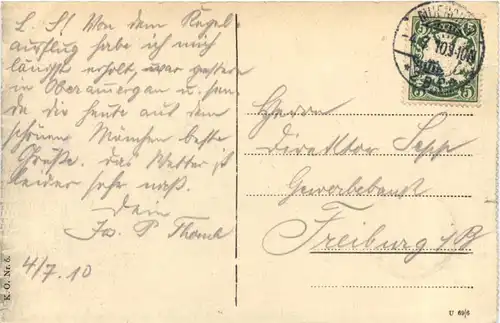 L. S! Von dem Kegel-
ausflug habe ich mich
längst erholt, war gestern
in Oberammergau u. sen-
de dir heute aus dem
schönen München beste
Grüße. Das Wetter ist
leider sehr naß.
Dein
Jos. P.
4/7.10
K.-O. Nr. 6.
Herrn
Direktor Sepp
Gewerbebank
Freiburg i/B
U 69/6
5
5